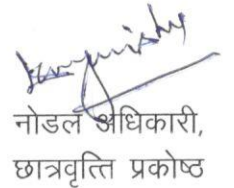 नोडल अधिकारी,
छात्रवृत्ति प्रकोष्ठ